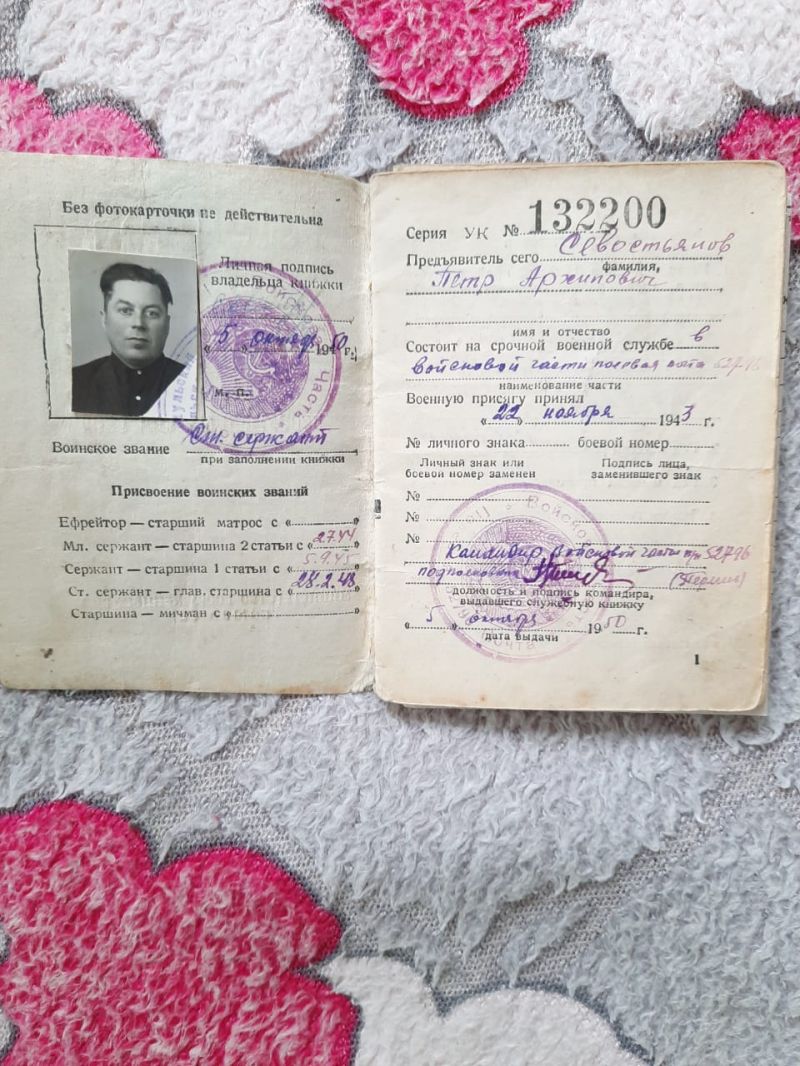 Без фотокарточки не действительна
Личная подпись
владельца книжки
«5» октябр 1950 г.
М. П.
Воинское звание Ст. сержант
при заполнении книжки
Присвоение воинских званий
Ефрейтор — старший матрос с «
Мл. сержант — старшина 2 статьи с « 2744
Сержант — старшина 1 статьи с « 5.9.45
Ст. сержант — глав. старшина с « 28.2.48
Старшина — мичман с «
Серия УК № 132200
Предъявитель сего Севостьянов
фамилия,
Петр Архипович
имя и отчество
Состоит на срочной военной службе в
войсковой части полевая почта 52796
наименование части
Военную присягу принял
«22» ноября 1943 г.
№ личного знака боевой номер
Личный знак или
боевой номер заменен
Подпись лица,
заменившего знак
№
№
№
Командир войсковой части п/п 52796
подполковник
должность и подпись командира,
выдавшего служебную книжку
«5» октября 1950 г.
дата выдачи
1